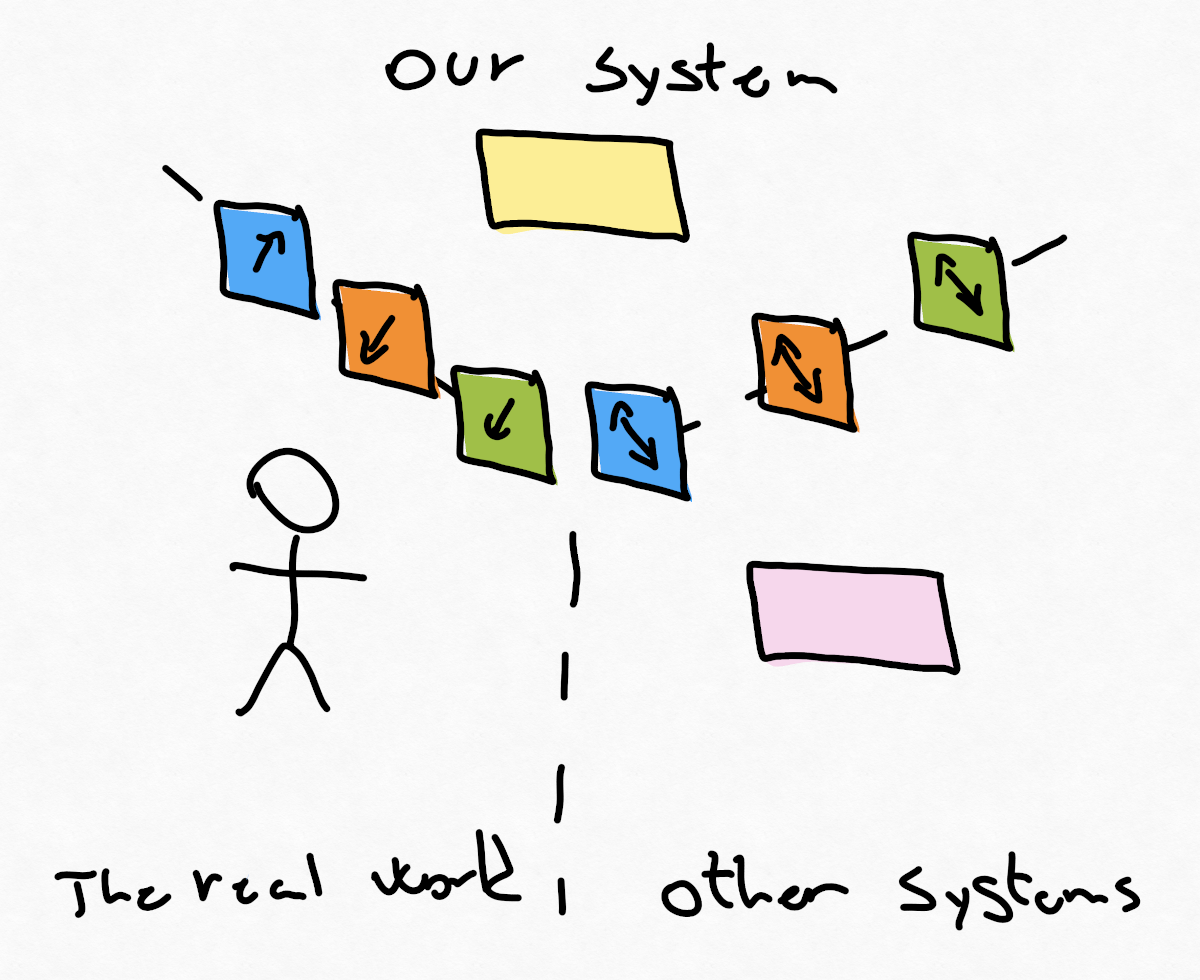 Our system
The real work
other systems